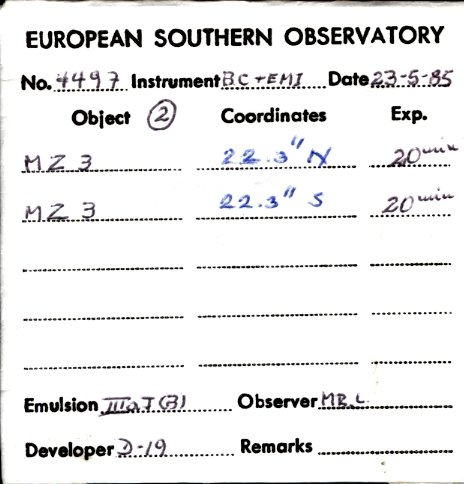 EUROPEAN SOUTHERN OBSERVATORY
No. 4497 Instrument BC+EMI Date 23-5-85
Object ② Coordinates Exp.
MZ 3 22.3" N 20 min
MZ 3 22.3" S 20 min
Emulsion IIIaJ (B) Observer MR.L.
Developer D-19 Remarks